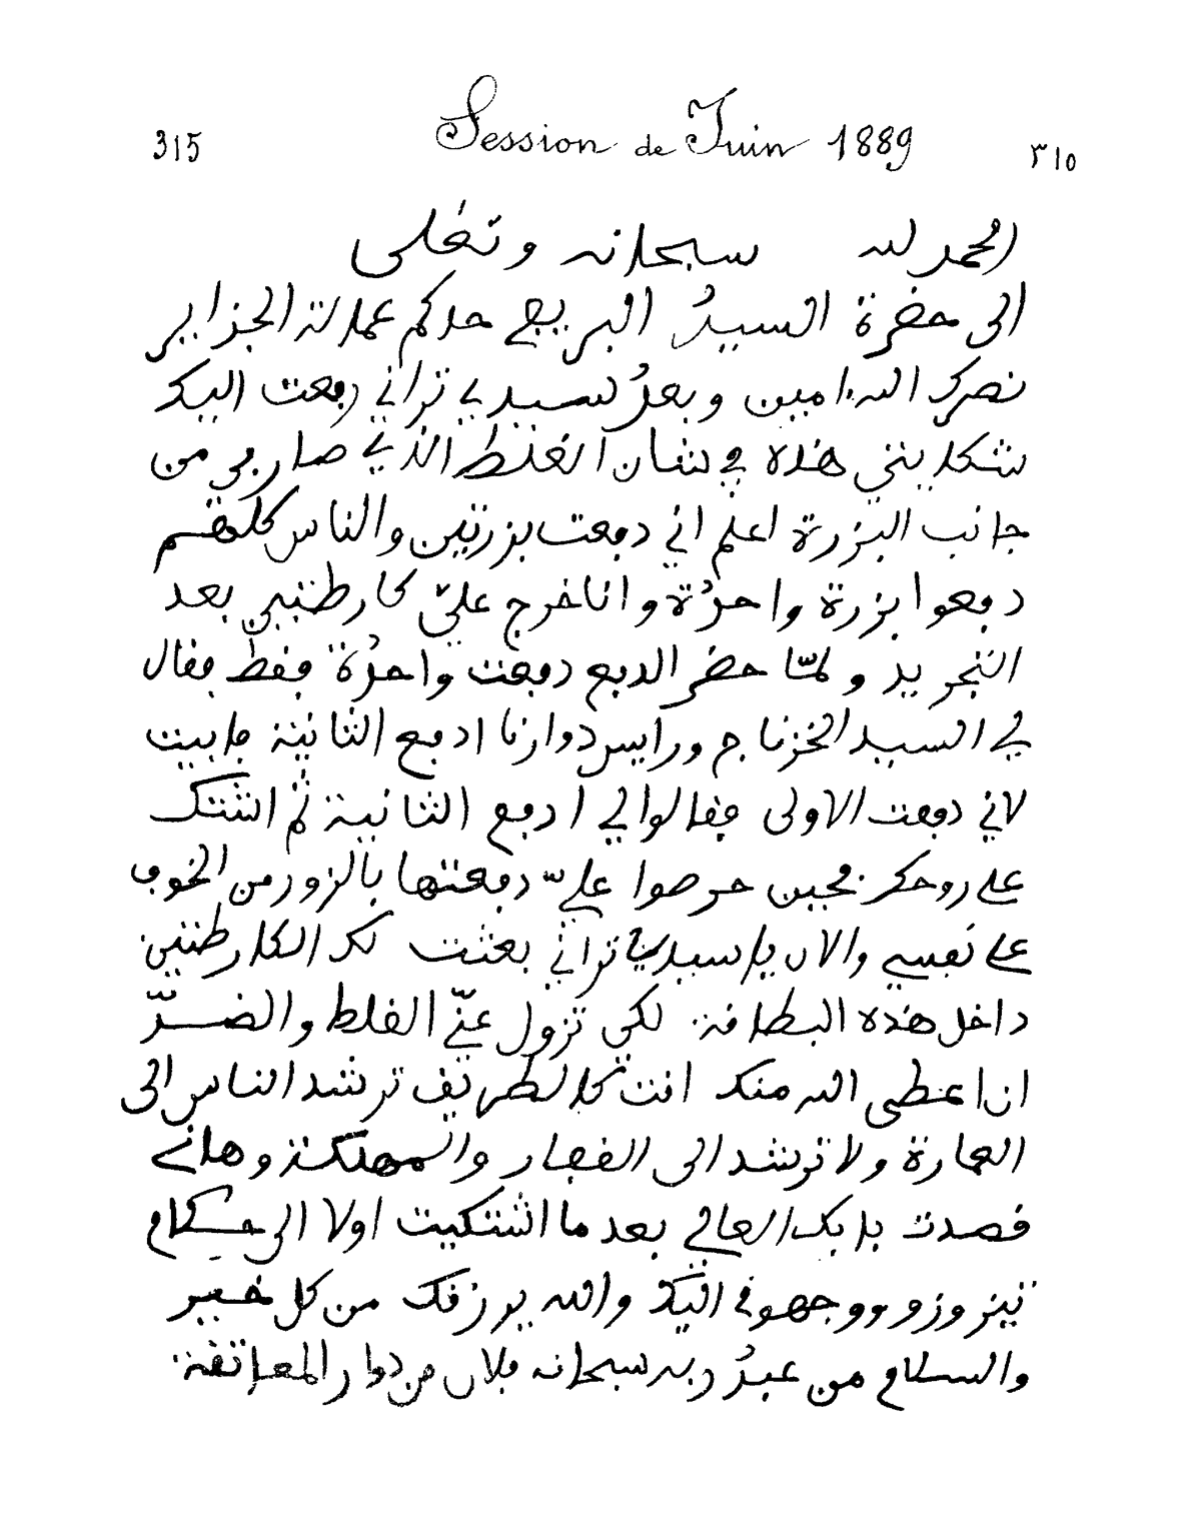 315 Session de Juin 1889 ٣١٥
الحمد لله سبحانه وتعلى
الى حضرة السيد البريڢي حاكم عمالة الجزاير
نصرك الله امين وبعد لسيدي تراني رڢعت اليك
شكايتي هذه ڢي شان الغلط الذي صار بي من
جانب البزرة اعلم اني دڢعت بزرتين والناس كلهم
دڢعوا بزرة واحدة وانا خرج عليّ كارطتين بعد
التجريد ولمّا حضر الدڢع دڢعت واحدة ڢفط ڢفال
لي السيد الخزناجي ورايس دوارنا ادڢع الثانية ڢابيت
لاني دڢعت الاولى ڢفالوا لي ادڢع الثانية ثم اشتك
على روحك ڢحين حرصوا عليّ دڢعتها بالزور من الخوڢ
على نڢسي والان يا سيدي تراني بعثت لك الكارطتين
داخل هذه البطافة لكي تزول عنّي الغلط والضرّ
ان اعطى الله منك انت كالطريف ترشد الناس الى
العمارة ولا ترشد الى الڢفار والمهلكة وهاني
فصدت بابك العالي بعد ما اشتكيت اولا الى حكام
تيزوزو ووجهوني اليك والله يرزفك من كل خير
والسلام من عبد ربه سبحانه ڢلان من دوار المعاتفة